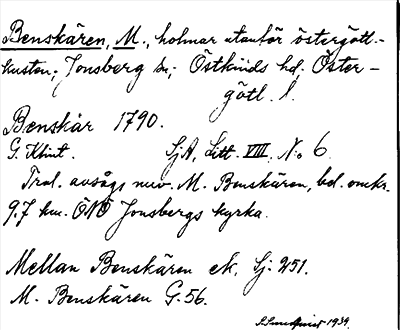 Benskären, M., holmar utanför östergötl.-
kusten; Jonsberg sn; Östkinds hd. Öster-
götl. l.
Benskär 1790.
G. Klint. SjA, Litt. VIII, No 6.
Trol. avsågs nuv. M. Benskären, bel. omkr.
9.7 km. ÖNÖ Jonsbergs kyrka.
Mellan Benskären ek, Sj. 251.
M. Benskären G. 56.
1934.